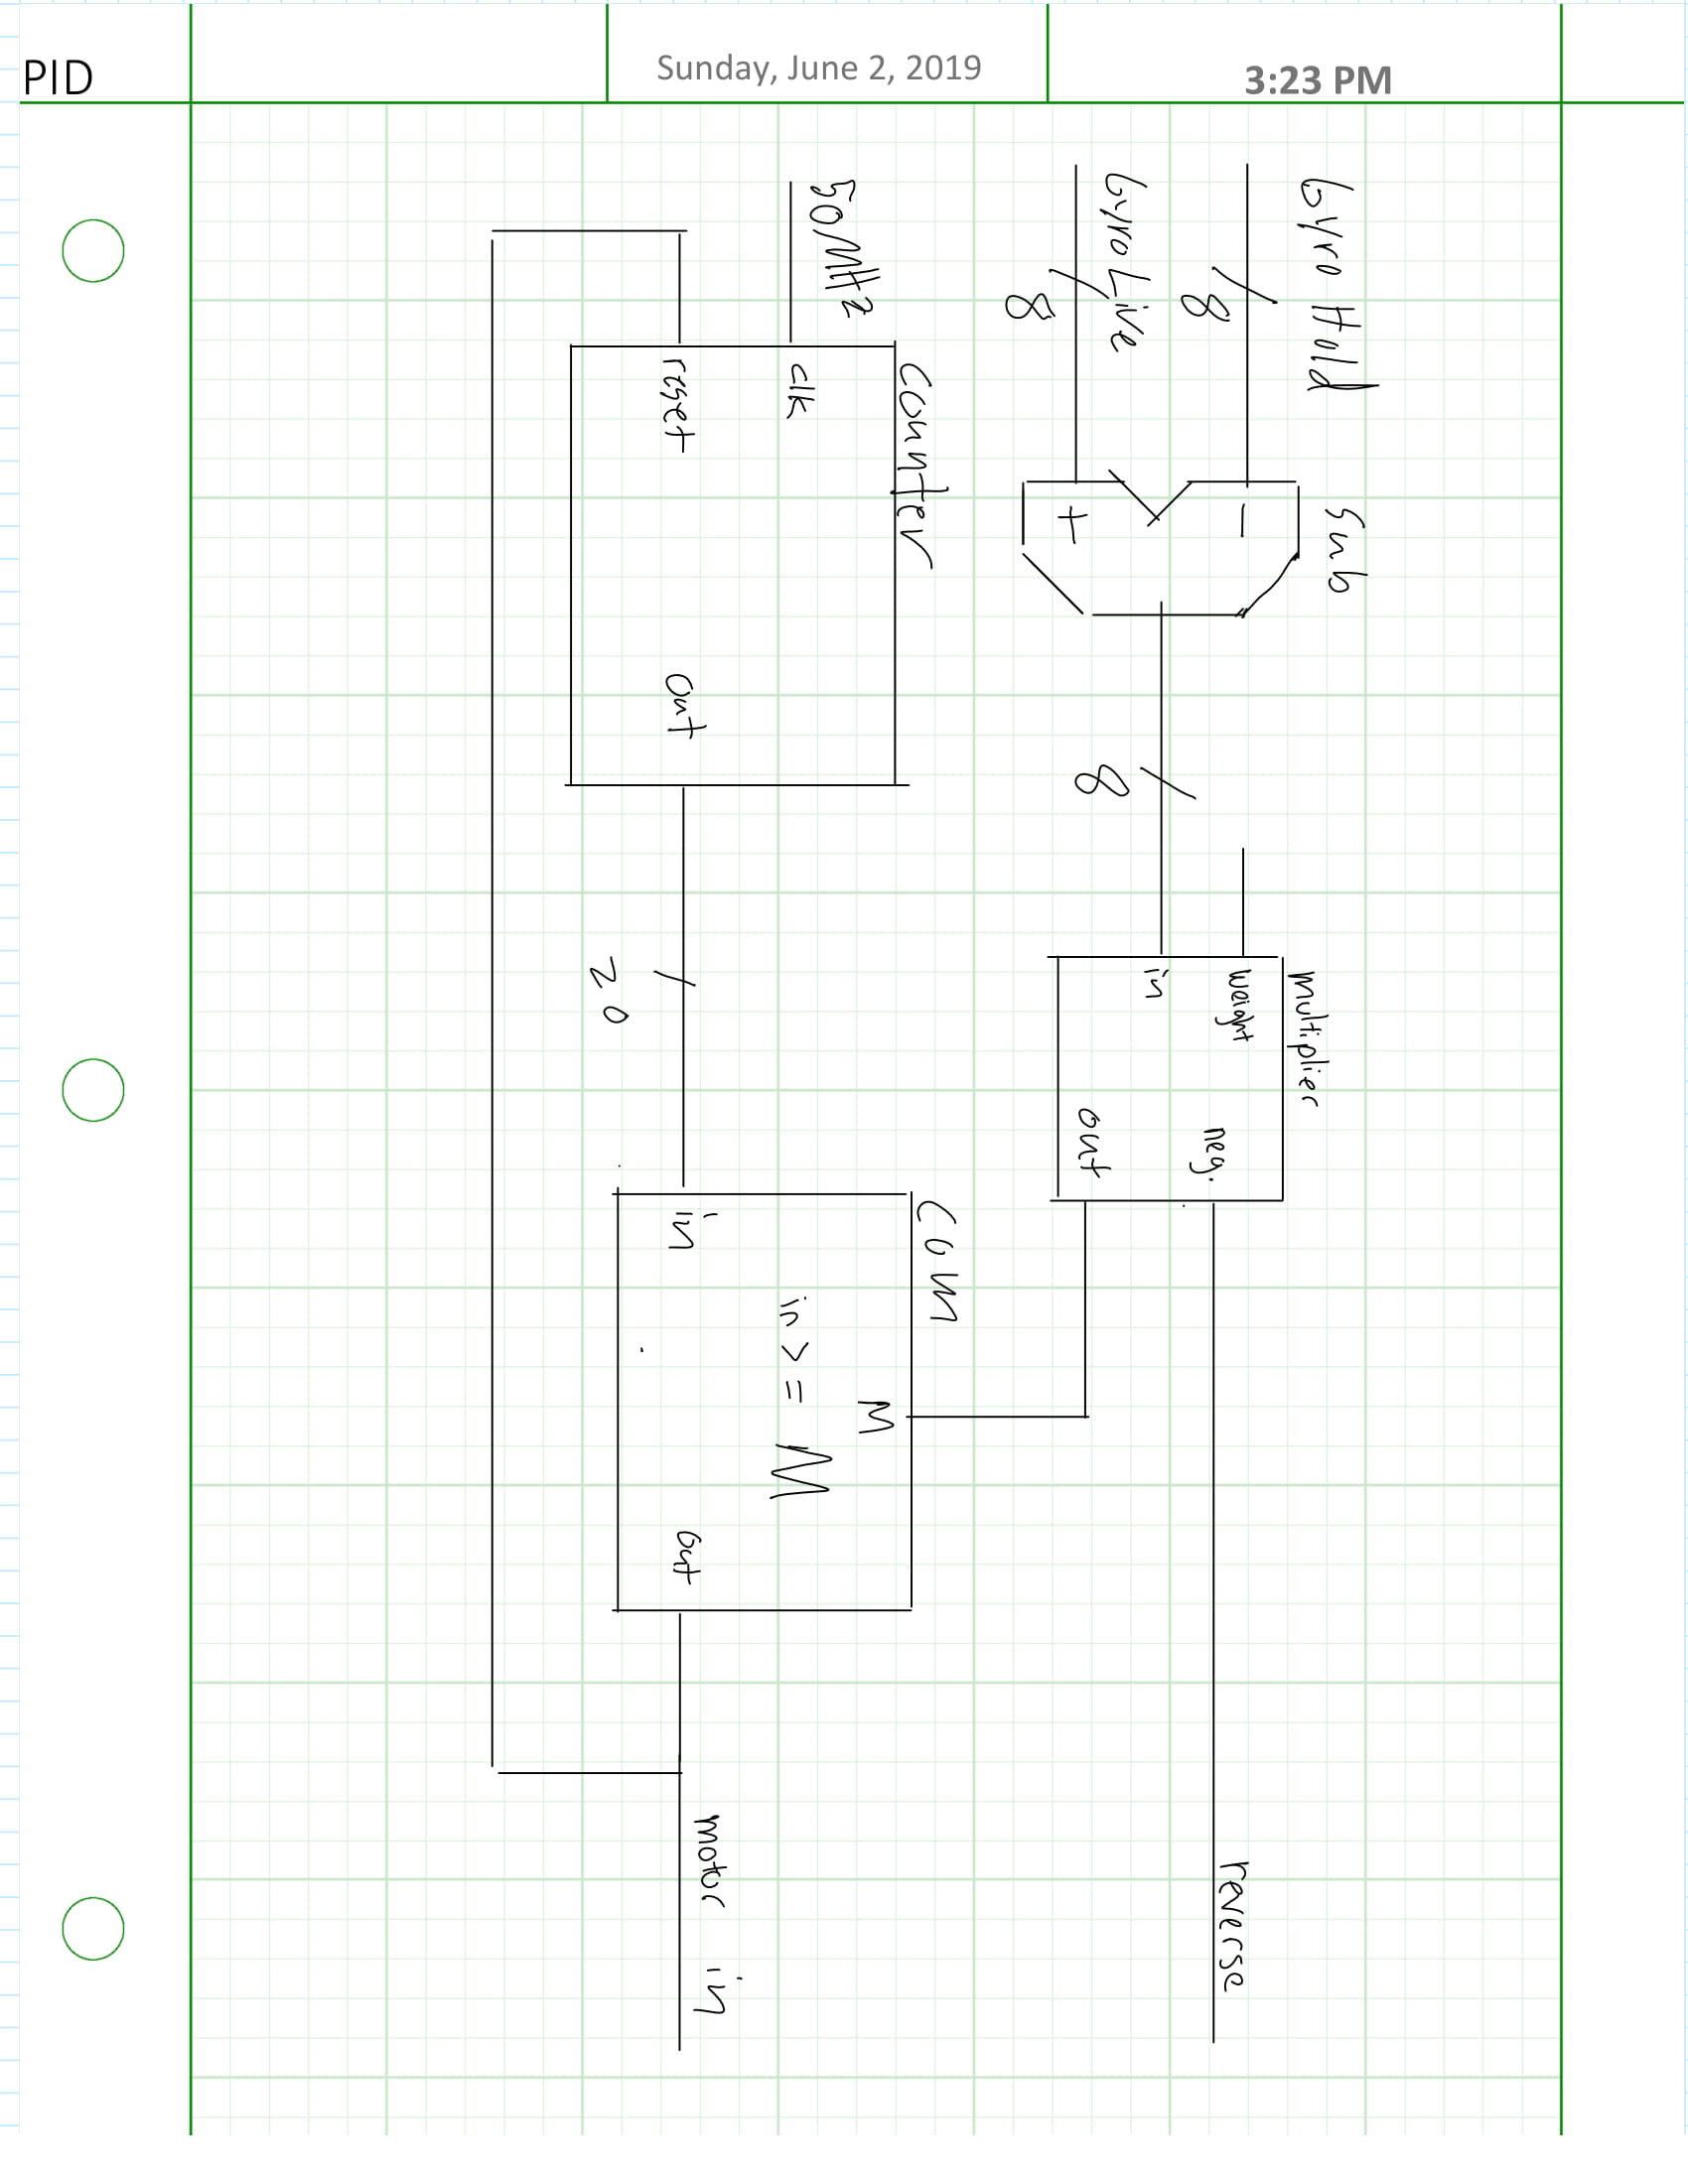 3:23 PM
Sunday, June 2, 2019
PID
Gyro Hold
8
Gyro Live
8
Sub
−
+
8
multiplier
weight
in
neg.
out
reverse
counter
50MHz
clk
reset
out
20
com
M
in >= M
in
out
motor in